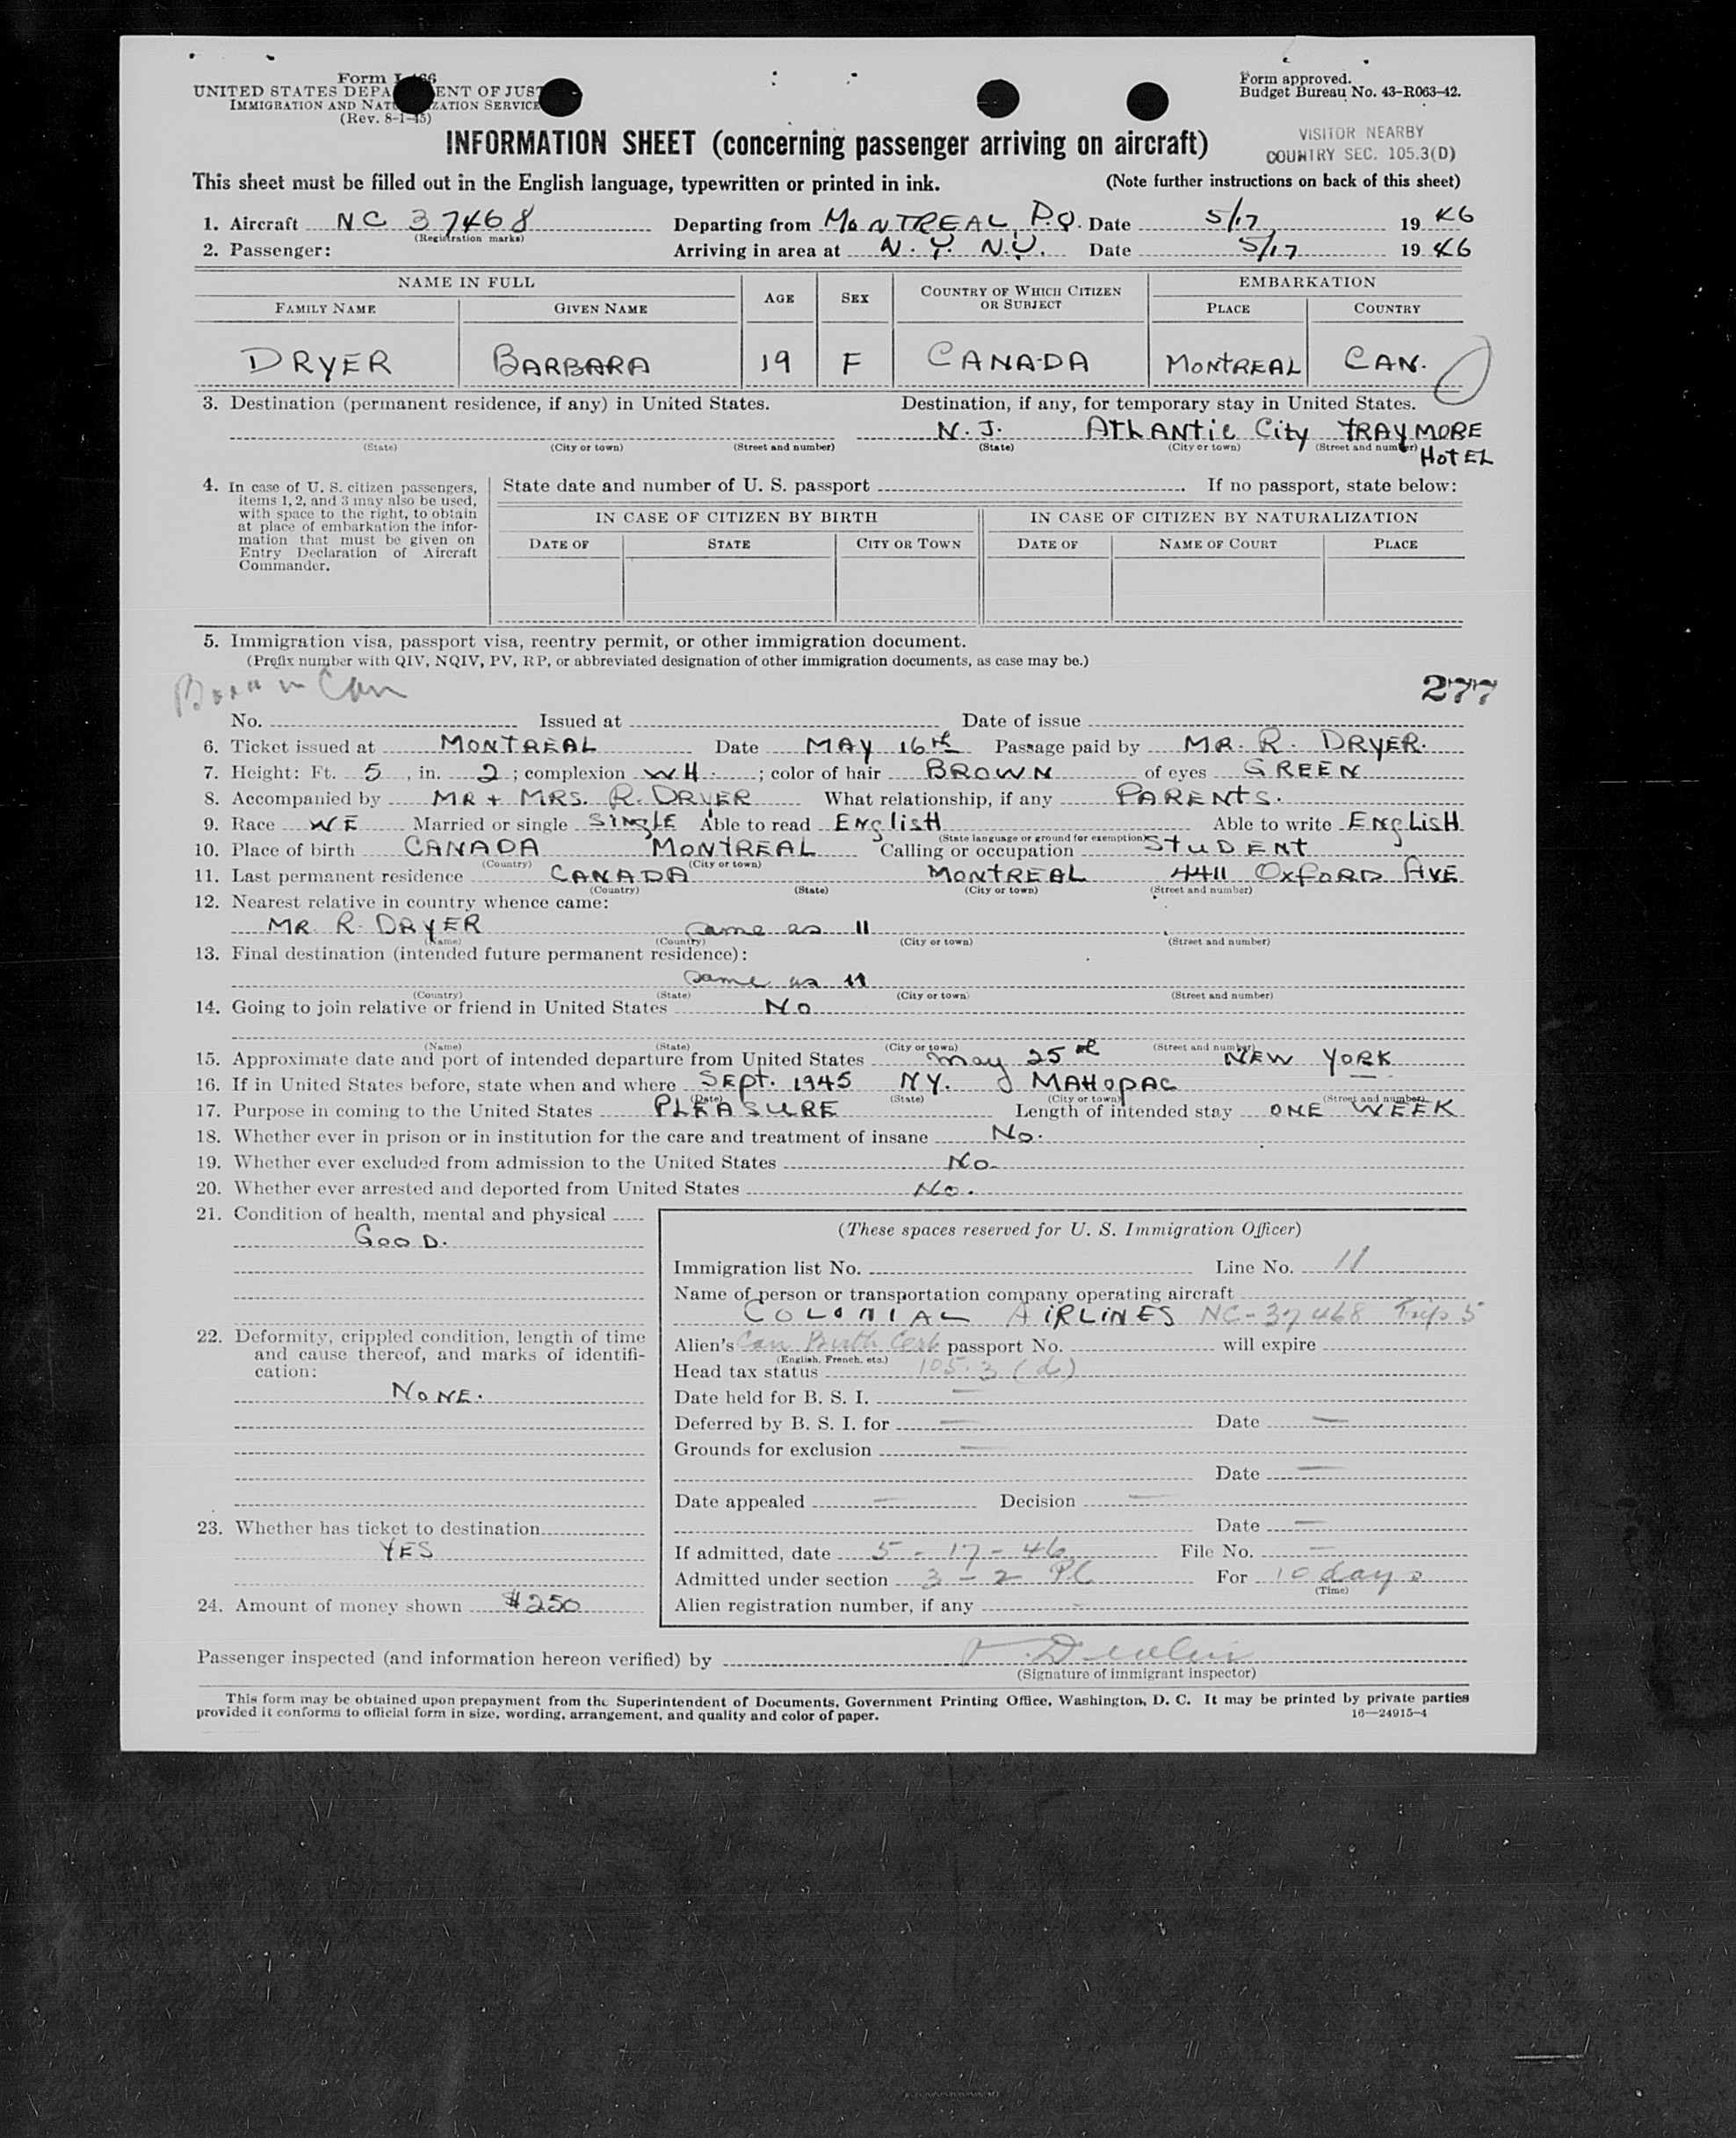 Form I-466
UNITED STATES DEPA ENT OF JUST
IMMIGRATION AND NAT ZATION SERVICE
(Rev. 8-1-45)
Form approved.
Budget Bureau No. 43-R063-42.
INFORMATION SHEET (concerning passenger arriving on aircraft)
VISITOR NEARBY
COUNTRY SEC. 105.3(D)
This sheet must be filled out in the English language, typewritten or printed in ink. (Note further instructions on back of this sheet)
1. Aircraft NC 37468 Departing from MONTREAL, P.Q. Date 5/17 1946
(Registration marks)
2. Passenger: Arriving in area at N.Y. N.Y. Date 5/17 1946
NAME IN FULL AGE SEX COUNTRY OF WHICH CITIZEN OR SUBJECT EMBARKATION
FAMILY NAME GIVEN NAME PLACE COUNTRY
DRYER BARBARA 19 F CANADA MONTREAL CAN.
3. Destination (permanent residence, if any) in United States. Destination, if any, for temporary stay in United States.
N.J. ATLANTIC CITY TRAYMORE
(State) (City or town) (Street and number) (State) (City or town) (Street and number)
HOTEL
4. In case of U. S. citizen passengers, items 1, 2, and 3 may also be used, with space to the right, to obtain at place of embarkation the information that must be given on Entry Declaration of Aircraft Commander.
State date and number of U. S. passport . If no passport, state below:
IN CASE OF CITIZEN BY BIRTH IN CASE OF CITIZEN BY NATURALIZATION
DATE OF STATE CITY OR TOWN DATE OF NAME OF COURT PLACE
5. Immigration visa, passport visa, reentry permit, or other immigration document.
(Prefix number with QIV, NQIV, PV, RP, or abbreviated designation of other immigration documents, as case may be.)
Born in Can
277
No. Issued at Date of issue
6. Ticket issued at MONTREAL Date MAY 16th Passage paid by MR. R. DRYER.
7. Height: Ft. 5, in. 2; complexion WH.; color of hair BROWN of eyes GREEN
8. Accompanied by MR + MRS. R. DRYER What relationship, if any PARENTS.
9. Race WE Married or single SINGLE Able to read ENGLISH Able to write ENGLISH
(State language or ground for exemption)
10. Place of birth CANADA MONTREAL Calling or occupation STUDENT
(Country) (City or town)
11. Last permanent residence CANADA MONTREAL 4411 OXFORD AVE
(Country) (State) (City or town) (Street and number)
12. Nearest relative in country whence came:
MR. R. DRYER same as 11
(Name) (Country) (City or town) (Street and number)
13. Final destination (intended future permanent residence):
same as 11
(Country) (State) (City or town) (Street and number)
14. Going to join relative or friend in United States NO
(Name) (State) (City or town) (Street and number)
15. Approximate date and port of intended departure from United States May 25th NEW YORK
16. If in United States before, state when and where SEPT. 1945 NY. MAHOPAC
(Date) (State) (City or town) (Street and number)
17. Purpose in coming to the United States PLEASURE Length of intended stay ONE WEEK
18. Whether ever in prison or in institution for the care and treatment of insane NO.
19. Whether ever excluded from admission to the United States NO
20. Whether ever arrested and deported from United States NO.
21. Condition of health, mental and physical
GOOD.
22. Deformity, crippled condition, length of time and cause thereof, and marks of identification:
NONE.
23. Whether has ticket to destination
YES
24. Amount of money shown $250
(These spaces reserved for U. S. Immigration Officer)
Immigration list No. Line No. 11
Name of person or transportation company operating aircraft
COLONIAL AIRLINES NC-37468 Trip 5
Alien's Can Birth Cert passport No. will expire
(English, French, etc.)
Head tax status 105.3 (d)
Date held for B. S. I. —
Deferred by B. S. I. for — Date —
Grounds for exclusion —
Date —
Date appealed — Decision —
Date —
If admitted, date 5-17-46 File No. —
Admitted under section 3-2 Pl For 10 days
(Time)
Alien registration number, if any -
Passenger inspected (and information hereon verified) by
(Signature of immigrant inspector)
This form may be obtained upon prepayment from the Superintendent of Documents, Government Printing Office, Washington, D. C. It may be printed by private parties
provided it conforms to official form in size, wording, arrangement, and quality and color of paper. 16—24915-4